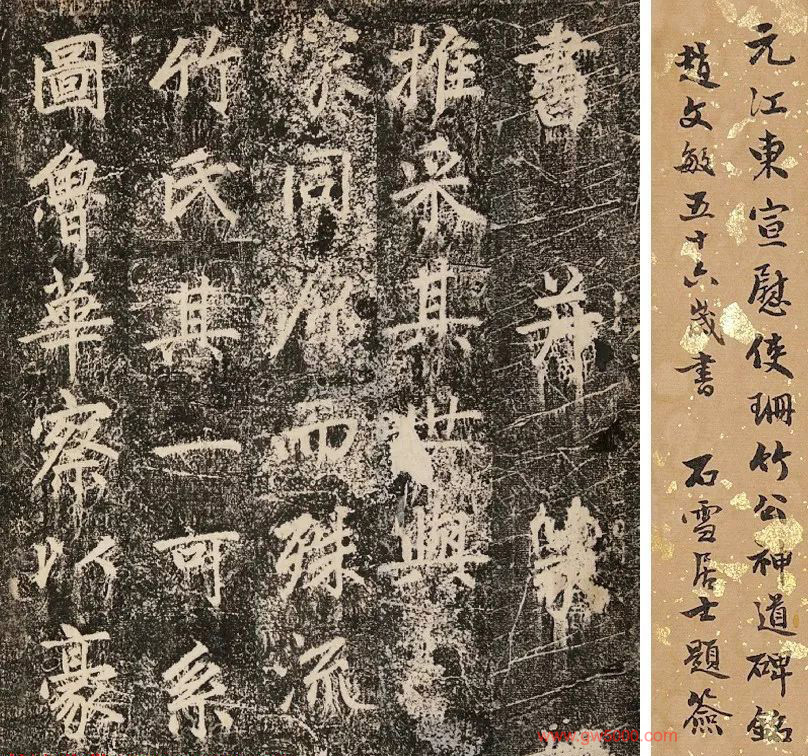 元江東宣慰使珊竹公神道碑銘
趙文敏五十六歲書 石雪居士題簽
書并篆
推采其世與
家同而殊流
竹氏其一可系
圖魯華察以豪
www.gw5000.com